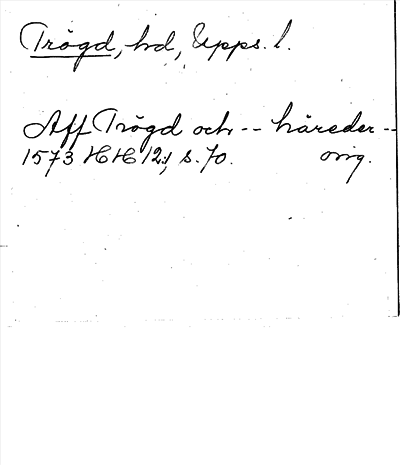 Trögd, hd, Upps. l.
Aff Trögd och -- häreder --
1573 HH 12:, s. 70. orig.